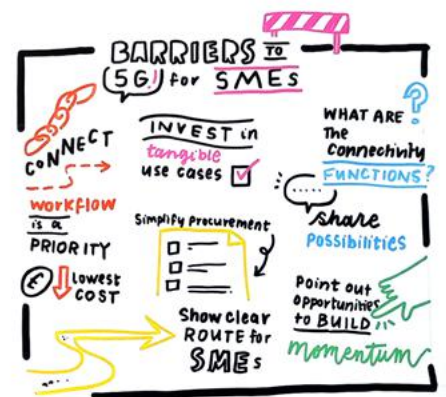 BARRIERS TO
5G! for SMEs
CONNECT
workflow
is a
PRIORITY
€ lowest
COST
INVEST in
tangible
use cases
Simplify procurement
Show clear
ROUTE for
SMEs
?
WHAT ARE
the
connectivity
FUNCTIONS?
share
possibilities
Point out
opportunities
to BUILD
momentum